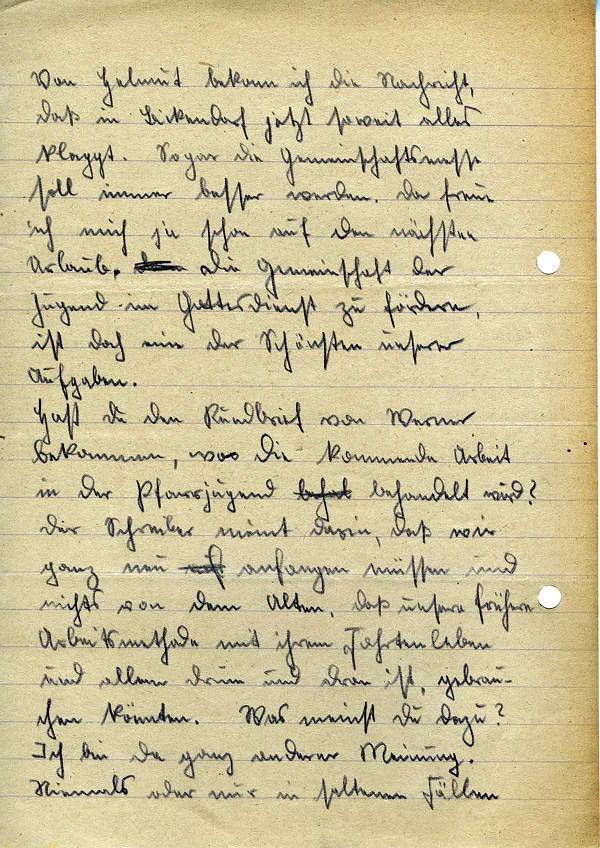 Von Helmut bekam ich die Nachricht,
daß in Bickendorf jetzt soweit alles
klappt. Sogar die Gemeinschaftsmesse
soll immer besser werden. Da freue
ich mich ja schon auf den nächsten
Urlaub. Die Gemeinschaft der
Jugend im Gottesdienst zu fördern,
ist doch eine der Schönsten unserer
Aufgaben.
Hast du den Rundbrief von Werner
bekommen, wo die kommende Arbeit
in der Pfarrjugend behandelt wird?
Der Schreiber meint darin, daß wir
ganz neu anfangen müssen und
nichts von dem Alten, daß unsere frühere
Arbeitsmethode mit ihrem Fahrtenleben
und allem drum und dran ist, gebrau-
chen könnten. Was meinst Du dazu?
Ich bin da ganz anderer Meinung.
Niemals oder nur in seltenen Fällen